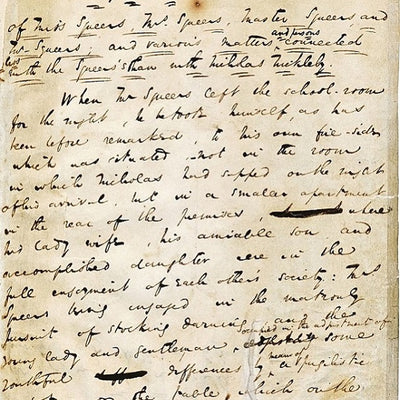 of Miss Squeers, Mrs. Squeers, Master Squeers and
Mr. Squeers; and various matters and persons connected
less with the Squeerses than with Nicholas Nickleby.
When Mr Squeers left the school-room
for the night, he betook himself, as has
been before remarked, to his own fire-side
which was situated - not in the room
in which Nicholas had supped on the night
of his arrival, but in a smaller apartment
in the rear of the premises, where
his lady wife, his amiable son and
accomplished daughter were in the
full enjoyment of each other's society: Mrs
Squeers being engaged in the matronly
pursuit of stocking darning, and the
young lady and gentleman occupied in the adjustment of some
youthful differences by means of a pugilistic
the table, which on the